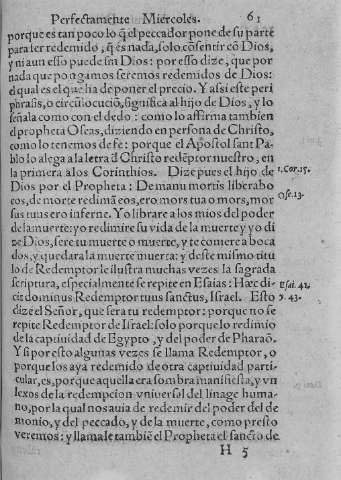 Perfectamente Miercoles. 61
porque es tan poco lo q̃ el peccador pone de su parte
para ser redemido, q̃ es nada, solo cõsentir cõ Dios,
y ni aun esso puede sin Dios: por esso dize, que por
nada que pongamos seremos redemidos de Dios:
el qual es el que ha de poner el precio. Y assi este peri
phrasis, o circũlocuciõ, significa al hijo de Dios, y lo
señala como con el dedo: como lo affirma tambien
el propheta Oseas, diziendo en persona de Christo,
como lo tenemos de fe: porque el Apostol sant Pa-
blo lo alega a la letra d̃ Christo redẽptor nuestro, en
la primera a los Corinthios. Dize pues el hijo de
1. Cor. 15.
Dios por el Propheta: De manu mortis liberabo
eos, de morte redimã eos, ero mors tua o mors, mor
Ose. 13.
sus tuus ero inferne. Yo librare a los mios del poder
de la muerte: yo redimire su vida de la muerte y yo di
ze Dios, sere tu muerte o muerte, y te comere a boca
dos, y quedara la muerte muerta: y deste mismo titu
lo de Redemptor le ilustra muchas vezes la sagrada
scriptura, especialmente se repite en Esaias: Hæc di-
Esai. 42.
cit dominus Redemptor tuus sanctus, Israel. Esto
y. 43.
dize el Señor, que sera tu redemptor: porque no se
repite Redemptor de Israel: solo porque lo redimio
de la captiuidad de Egypto, y del poder de Pharaõ.
Y si por esto algunas vezes se llama Redemptor, o
porque los aya redemido de otra captiuidad parti-
cular, es, porque aquella era sombra manifiesta, y vn
lexos de la redempcion vniuersal del linage huma-
no, por la qual nos auia de redemir del poder del de
monio, y del peccado, y de la muerte, como presto
veremos: y llamale tambiẽ el Propheta el sancto de
H 5